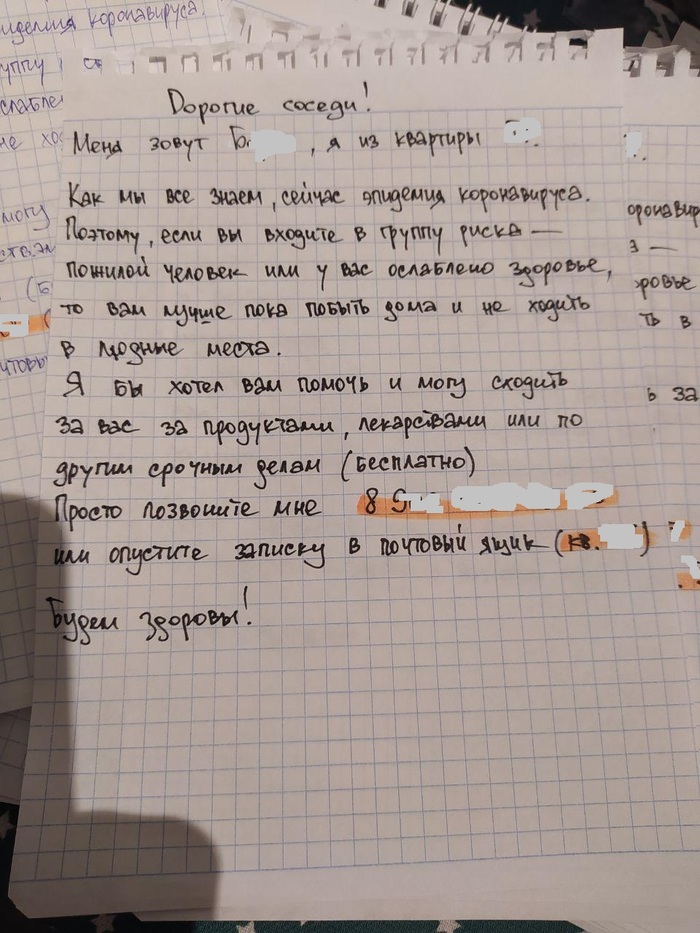 Дорогие соседи!
Меня зовут Б , я из квартиры
Как мы все знаем, сейчас эпидемия коронавируса.
Поэтому, если вы входите в группу риска —
пожилой человек или у вас ослаблено здоровье,
то вам лучше пока побыть дома и не ходить
в людные места.
Я бы хотел вам помочь и могу сходить
за вас за продуктами, лекарствами или по
другим срочным делам (бесплатно)
Просто позвоните мне 8 9
или опустите записку в почтовый ящик (кв. )
Будем здоровы!